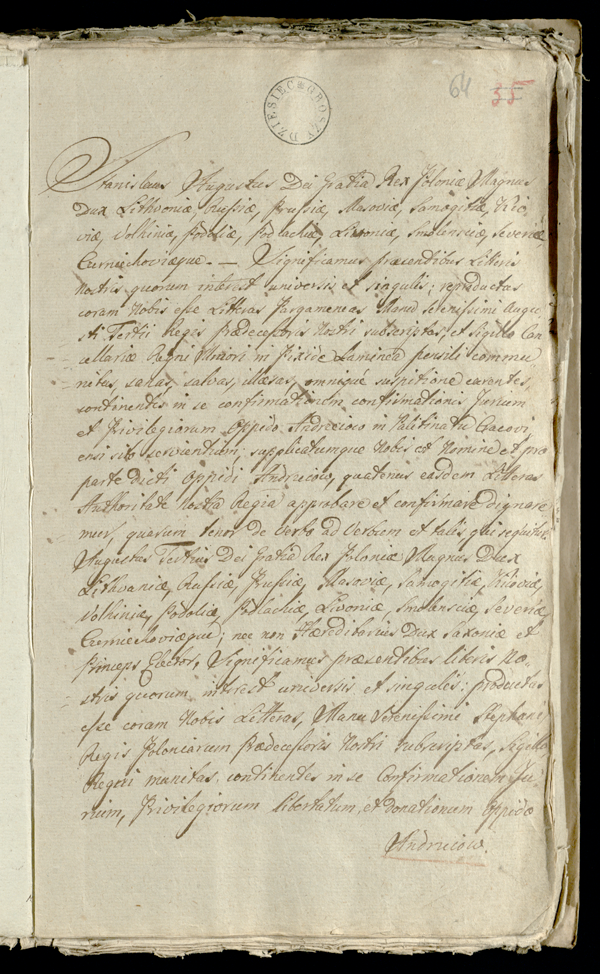 64 35
DZIESIEC GROSZY
Stanislaus Augustus Dei Gratia Rex Poloniæ Magnus
Dux Lithvoniæ, Russiæ, Prussiæ, Masoviæ, Samogitiæ, Kijo,
viæ, Volhiniæ, Podoliæ, Podlachiæ, Livoniæ, Smolensciæ, Severiæ
Czerniechoviæque. — Significamus præsentibus Litteris
Nostris quorum interest universis et singulis; reproductas
coram Nobis esse Litteras Pargameneas Manu Serenissimi Augu
sti Tertii Regis Prædecessoris Nostri subscriptas, et Sigillo Can
cellariæ Regni Minori in Pixide Laminea pensili commu
nitas, sanas, salvas, illæsas, omnique suspitione carentes,
continentes in se confirmationem confirmationis Jurium
et Privilegiorum Oppido Andreciow in Palitinatu Cracovi
ensi sito servientium, supplicatumque Nobis est Nomine et pro
parte dicti Oppidi Andreciow, quatenus easdem Litteras
Authoritate Nostra Regia approbare et confirmare dignare
mur, quarum tenor de Verbo ad Verbum est talis, qui sequitur
Augustus Tertius Dei Gratia Rex Poloniæ Magnus Dux
Lithvaniæ, Russiæ, Prussiæ, Masoviæ, Samogitiæ, Kijoviæ,
Volhiniæ, Podoliæ, Podlachiæ, Livoniæ, Smolensciæ, Severiæ
Czerniechoviæque; nec non Hæreditarius Dux Saxoniæ et
Princeps Elector, Significamus præsentibus literis No-
stris quorum interest universis et singulis: productas
esse coram Nobis Litteras, Manu Serenissimi Stephani
Regis Poloniarum Prædecessoris Nostri subscriptas, Sigillo
Regni munitas, continentes in se Confirmationem Ju-
rium, Privilegiorum libertatum, et Donationum Oppido
Andreciow.